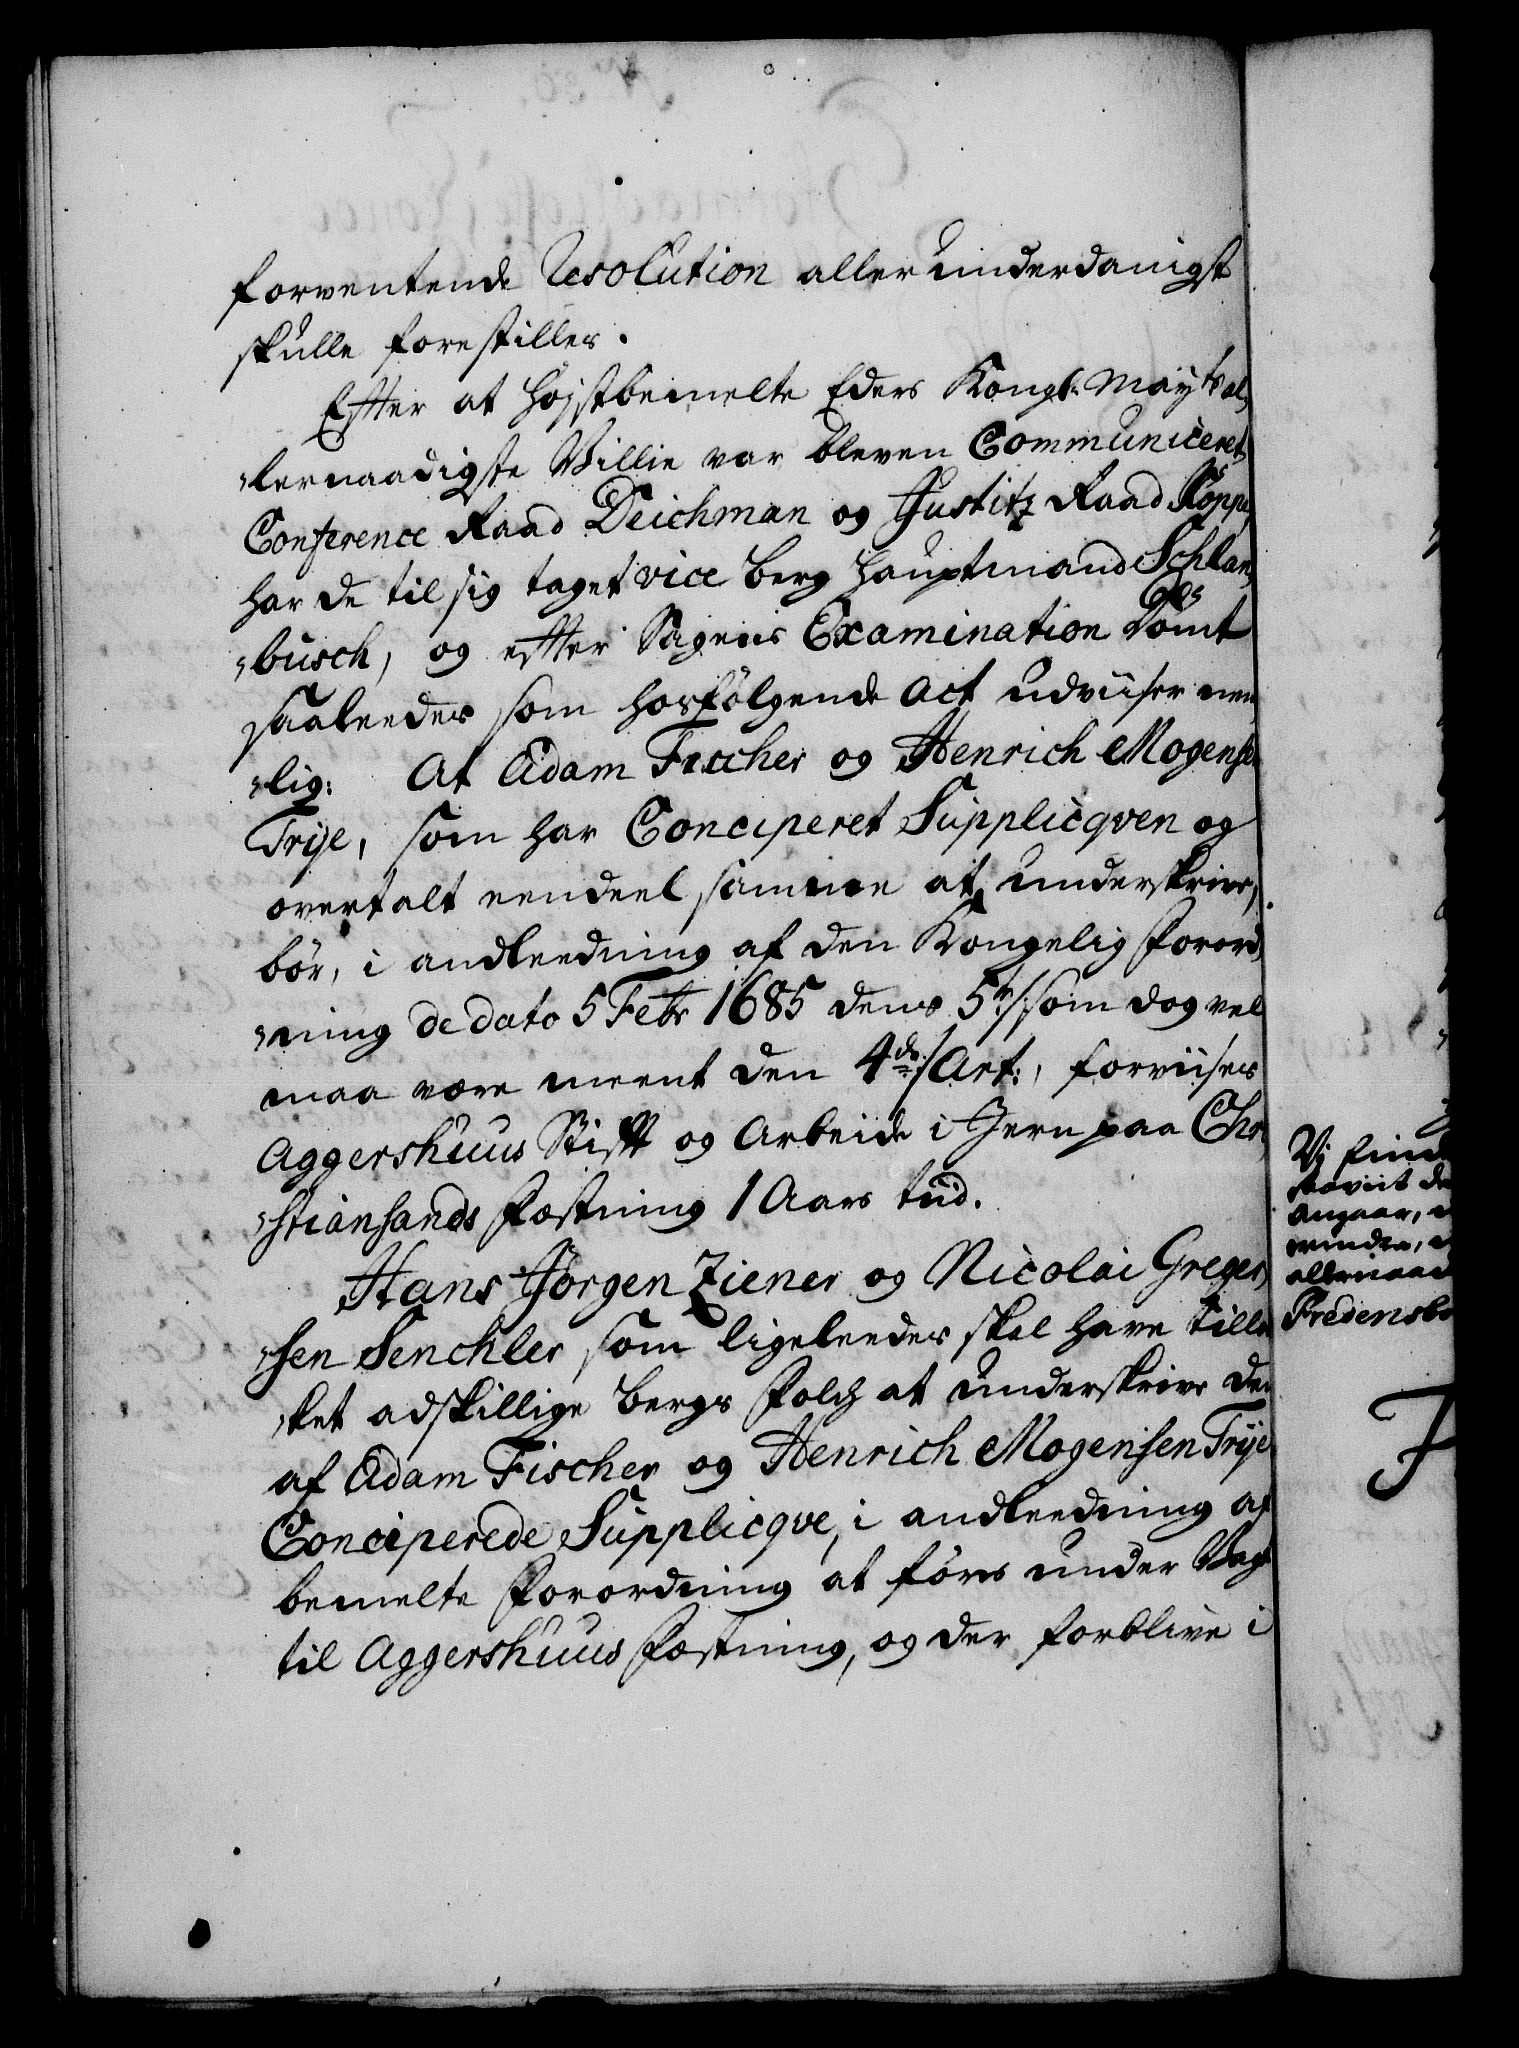 forventende Resolution allerunderdanigst
skulle forestilles.
Effter at højstbemelte Eders Kongl: Mayts al,
,,lernaadigste Villie var bleven Communiceret
Conference Raad Deichman og Justitz Raad Röppe,
har de til sig taget vice berg Hauptmand Schlan,
,,busch, og effter Sagens Examination dömt
saaleedes som hosfölgende Act udviiser nem,
,,lig: At Adam Fischer og Henrich Mogensen
Trÿe, som har Conciperet Supplicqven og
overtalt eendeel samme at underskrive,
bör, i andleedning af den Kongelig Forord,
,,ning de dato 5 Febr 1685 dens 5te /: som dog vel
maa være meent den 4de :/ Art:, forviises
Aggershuus Stift og Arbeide i Jern paa Chri,
,,stiansands Fæstning 1 Aars tiid.
Hans Jörgen Ziener og Nicolai Greger,
,,sen Senchler, som ligeleedes skal have tillo
,,ket adskillige bergs Folch at underskrive den
af Adam Fischer og Henrich Mogensen Trÿe
Conciperede Supplicqve, i andleedning af
bemelte Forordning at föres under Vagt
til Aggershuus Fæstning, og der forblive i
Vi find
angaar,
allernaad
Fredensbo
F